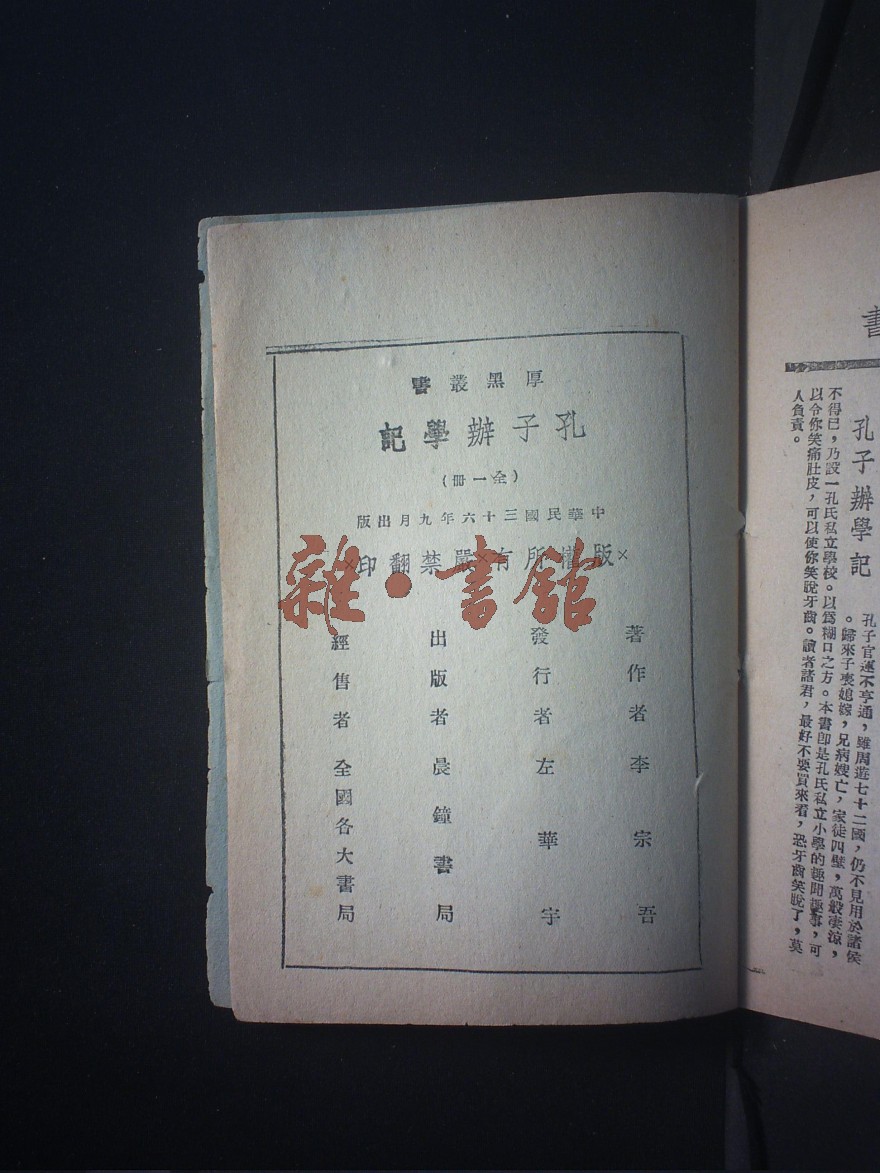 厚黑叢書
孔子辦學記
(全一冊)
中華民國三十六年九月出版
×版權所有×嚴禁翻印×
著作者李宗吾
發行者左華宇
出版者晨鐘書局
經售者全國各大書局
雜·書館
書
孔子辦學記
孔子官運不亨通,雖周遊七十二國,仍不見用於諸侯
。歸來子喪媳嫁,兄病嫂亡,家徒四壁,萬般凄涼,
不得已,乃設一孔氏私立學校。以爲糊口之方。本書卽是孔氏私立小學的趣聞趣事,可
以令你笑痛肚皮,可以使你笑脫牙齒。讀者諸君,最好不要買來看,恐牙齒笑脫了,莫
人負責。